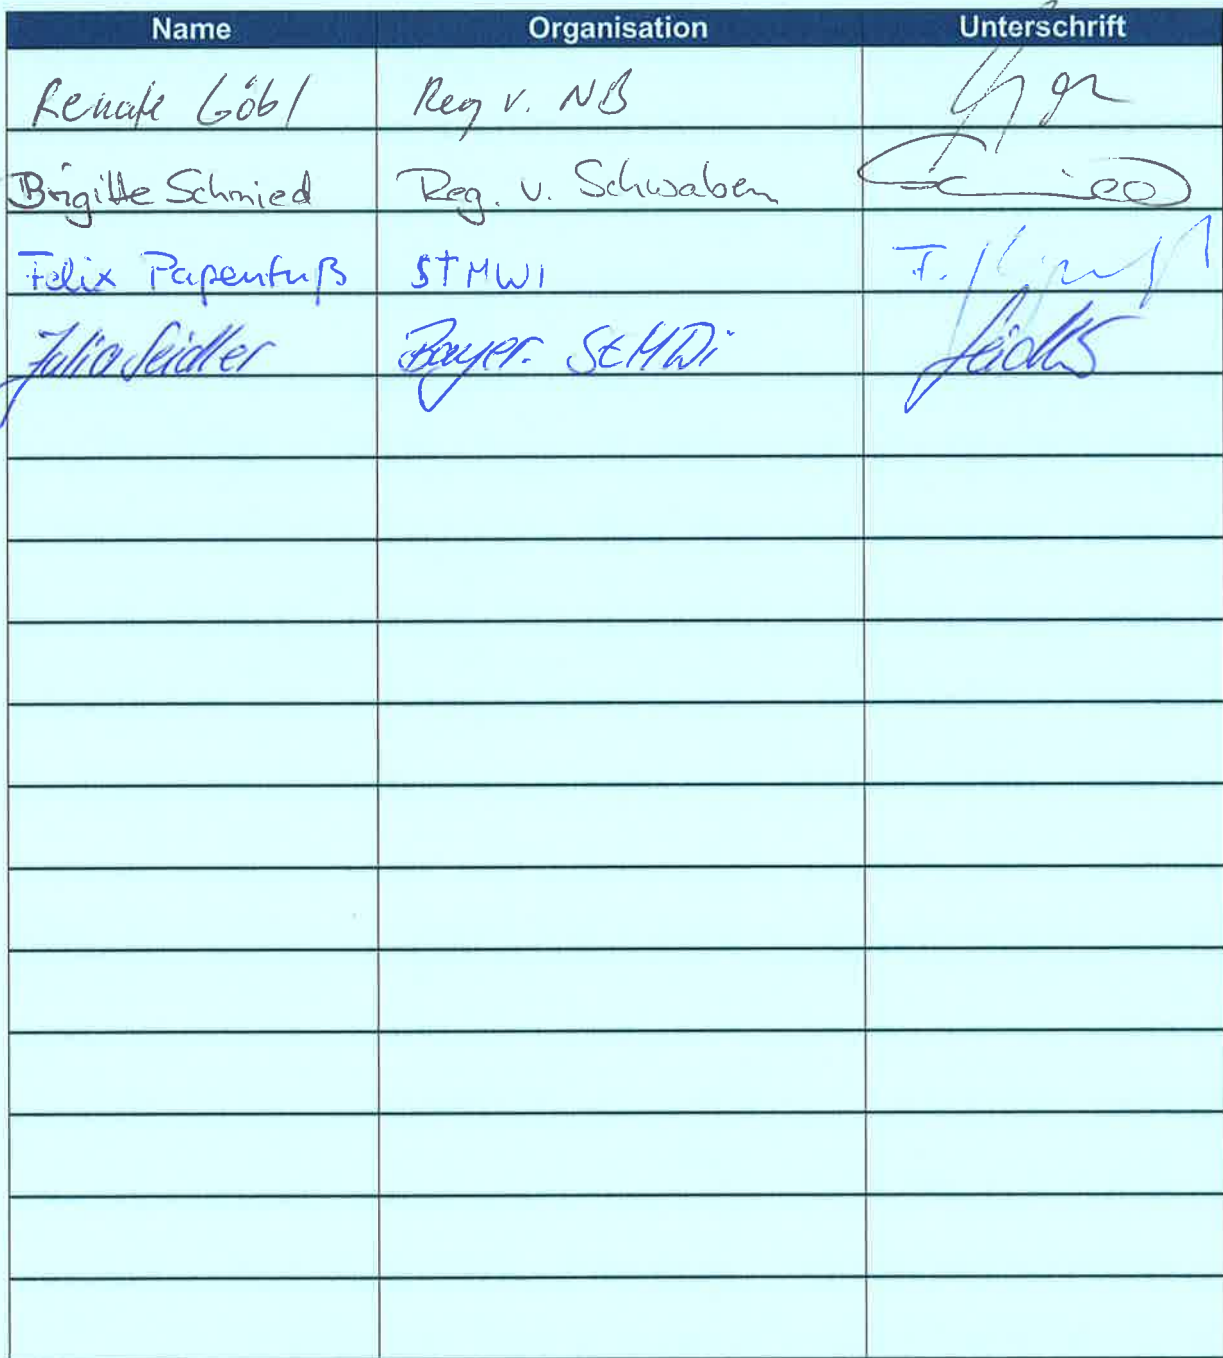 Name Organisation Unterschrift
Renate Göbl Reg v. NB
Brigitte Schmied Reg. v. Schwaben Schmied
Felix Papenfuß STMWI F.
Julia Seidler Bayer. StMWi Seidler